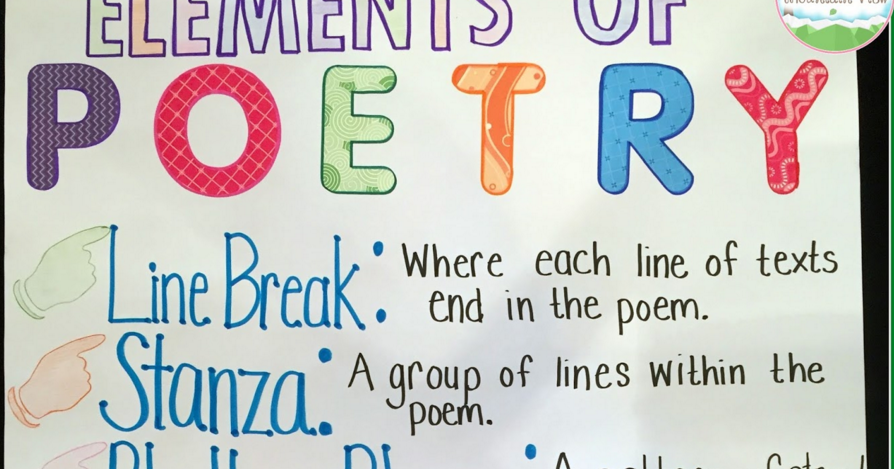 ELEMENTS OF
POETRY
Line Break: Where each line of texts
end in the poem.
Stanza: A group of lines within the
poem.